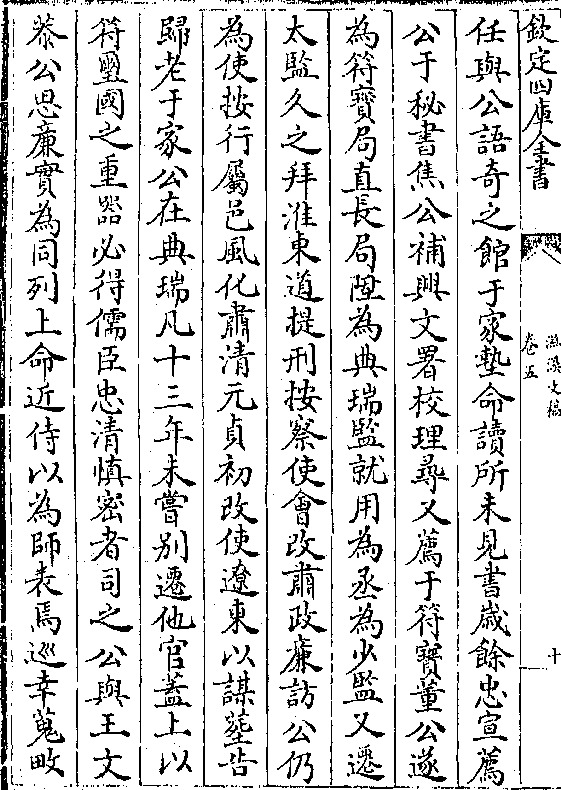 欽定四庫全書
滋溪文稿
卷五
十
任與公語奇之館于家塾命讀所未見書歲餘忠宣薦
公于秘書焦公補興文署校理尋又薦于符寶董公遂
為符寶局直長局陞為典瑞監就用為丞為少監又遷
太監久之拜淮東道提刑按察使會改肅政廉訪公仍
為使按行屬邑風化肅清元貞初改使遼東以謀塟告
歸老于家公在典瑞凡十三年未嘗别遷他官葢上以
符璽國之重器必得儒臣忠清慎密者司之公與王文
㳟公思廉實為同列上命近侍以為師表焉巡幸蒐畋